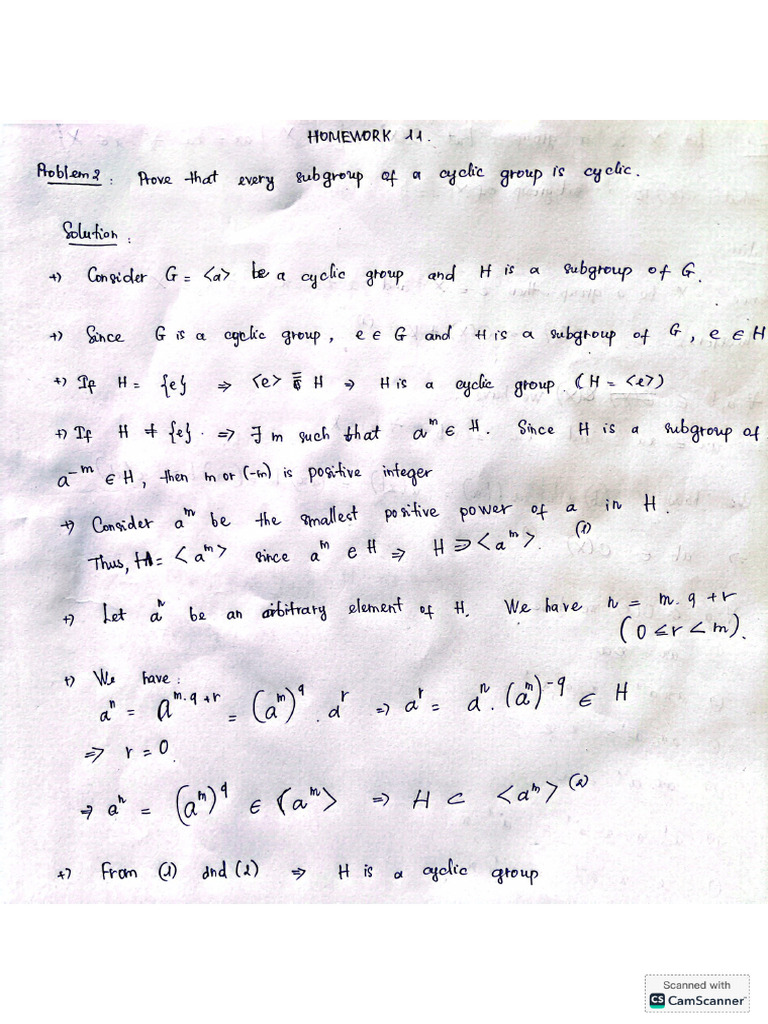 HOMEWORK 11.
Problem 2 : Prove that every subgroup of a cyclic group is cyclic.
Solution :
+) Consider G = <a> be a cyclic group and H is a subgroup of G.
+) Since G is a cyclic group, e ∈ G and H is a subgroup of G, e ∈ H
+) If H = {e} ⇒ <e> = H ⇒ H is a cyclic group. (H = <e>)
+) If H ≠ {e}. ⇒ ∃ m such that a^m ∈ H. Since H is a subgroup of
a^-m ∈ H, then m or (-m) is positive integer
+) Consider a^m be the smallest positive power of a in H.
Thus, H = <a^m> since a^m ∈ H ⇒ H ⊃ <a^m>. (1)
+) Let a^n be an arbitrary element of H. We have n = m.q + r
(0 ≤ r < m).
+) We have :
a^n = a^m.q+r = (a^m)^q . a^r ⇒ a^r = a^n. (a^m)^-q ∈ H
⇒ r = 0.
⇒ a^n = (a^m)^q ∈ <a^m> ⇒ H ⊂ <a^m> (2)
+) From (1) and (2) ⇒ H is a cyclic group
Scanned with
CS CamScanner